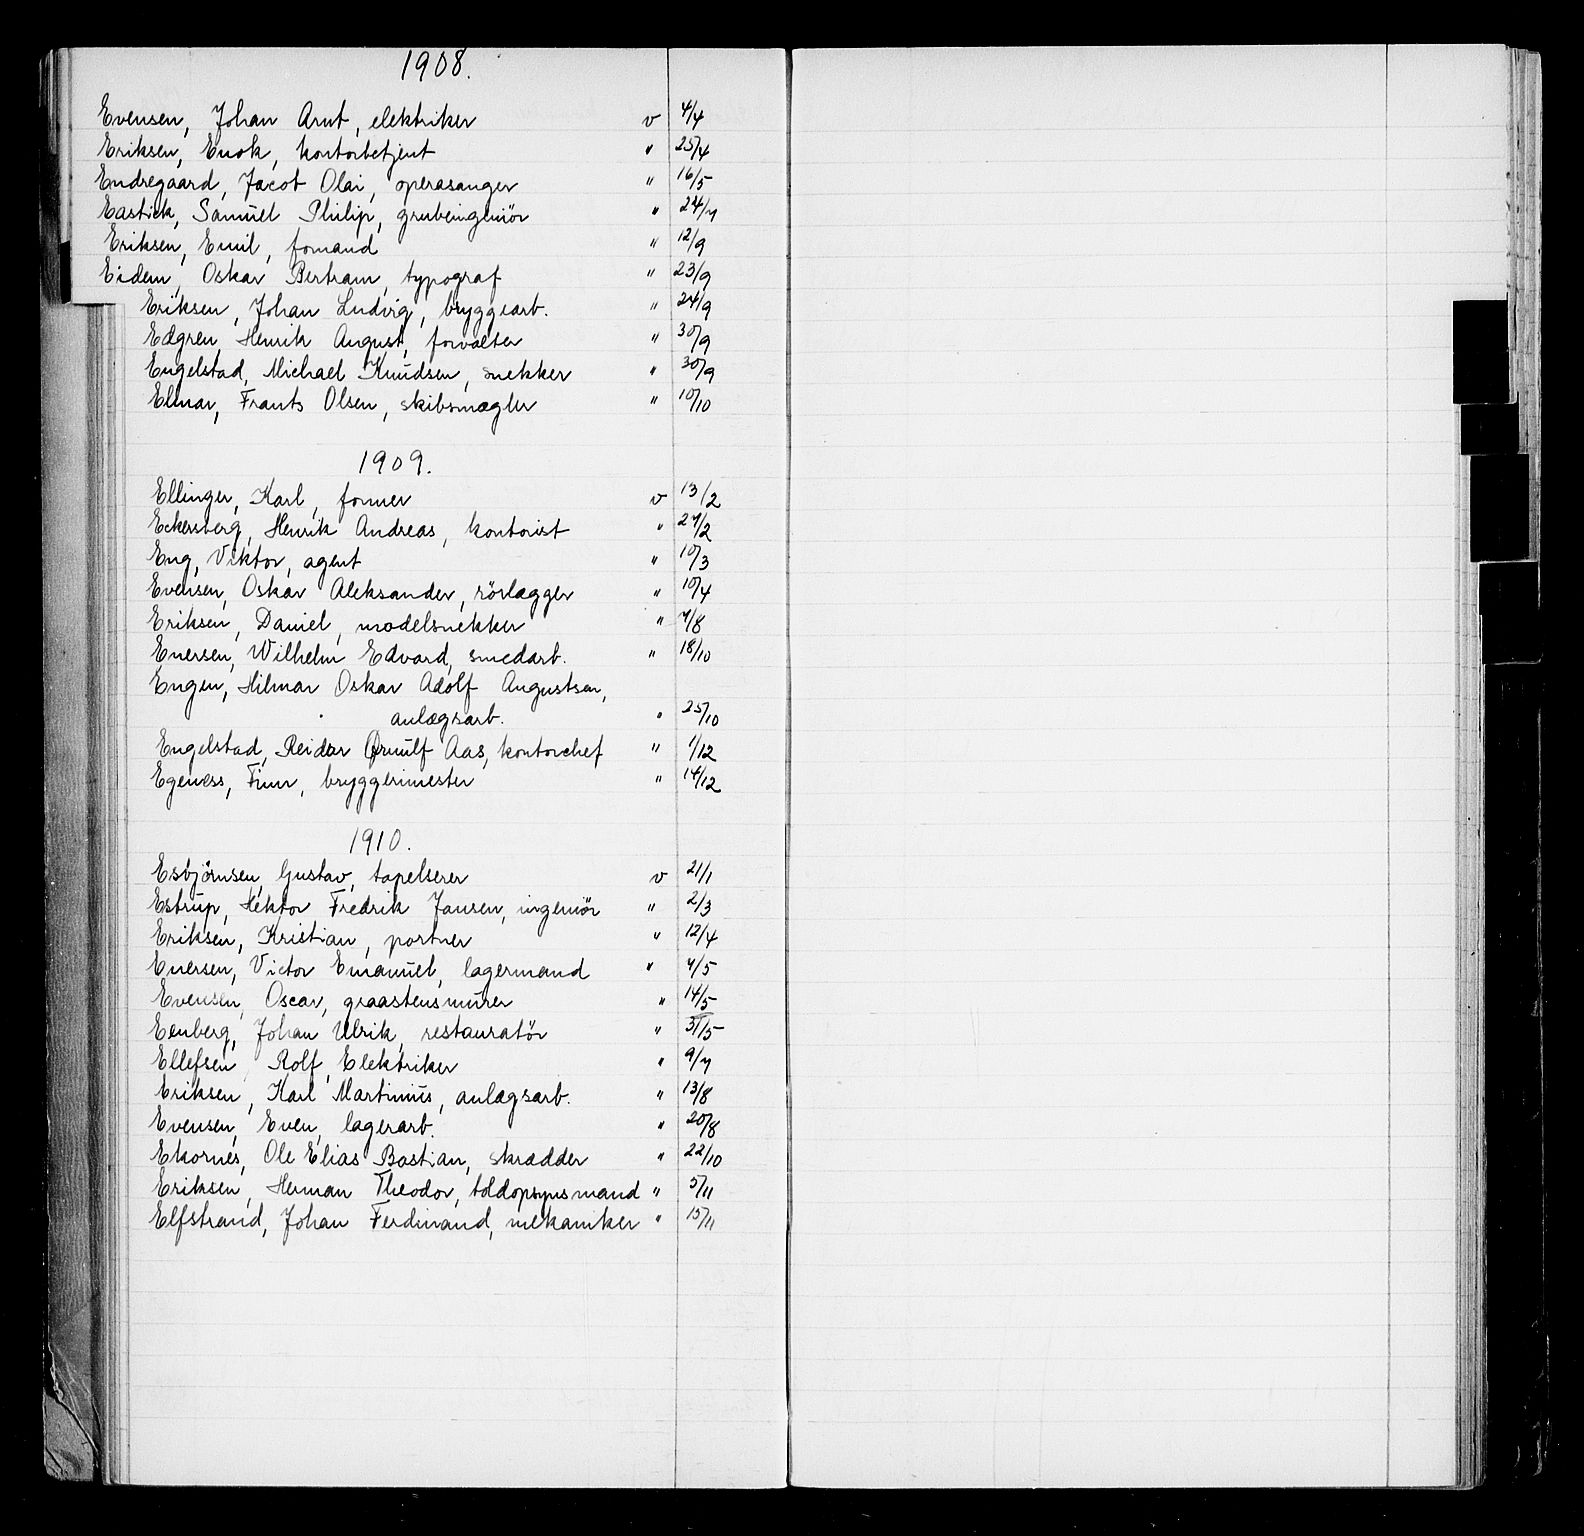 1908.
Evensen, Johan Arnt, elektriker v 4/4
Eriksen, Enok, kontorbetjent " 25/4
Endregaard, Jacob Olai, operasanger " 16/5
Eastick, Samuel Philip, grubeingeniör " 24/7
Eriksen, Emil, formand " 12/9
Eidem, Oskar Bertram, typograf " 23/9
Eriksen, Johan Ludvig, bryggearb. " 24/9
Edgren, Henrik August, forvalter " 30/9
Engelstad, Michael Knudsen, snekker " 30/9
Elnar, Frants Olsen, skibsmægler " 10/10
1909.
Ellinger, Karl, former v 13/2
Eckersberg, Henrik Andreas, kontorist " 27/2
Eng, Viktor, agent " 10/3
Evensen, Oskar Aleksander, rörlægger " 10/4
Eriksen, Daniel, modelsnekker " 7/8
Enersen, Wilhelm Edvard, smedarb. " 18/10
Engen, Hilmar Oskar Adolf Augustsen,
anlægsarb. " 25/10
Engelstad, Reidar Ørnulf Aas, kontorchef " 1/12
Egeness, Finn, bryggerimester " 14/12
1910.
Esbjörnsen, Gustav, tapetserer v 21/1
Estrup, Hektor Fredrik Jansen, ingeniør " 2/3
Eriksen, Kristian, portner " 12/4
Enersen, Victor Emanuel, lagermand " 7/5
Evensen, Oscar, graastensmurer " 14/5
Johan Ulrik, restauratør " 31/5
Ellefsen, Rolf, Elektriker " 9/7
Eriksen, Karl Martinius, anlægsarb. " 13/8
Evensen, Even, lagerarb. " 20/8
Ekornes, Ole Elias Bastian, skrædder " 22/10
Eriksen, Herman Theodor, toldopsynsmand " 5/11
Elfstrand, Johan Ferdinand, mekaniker " 15/11